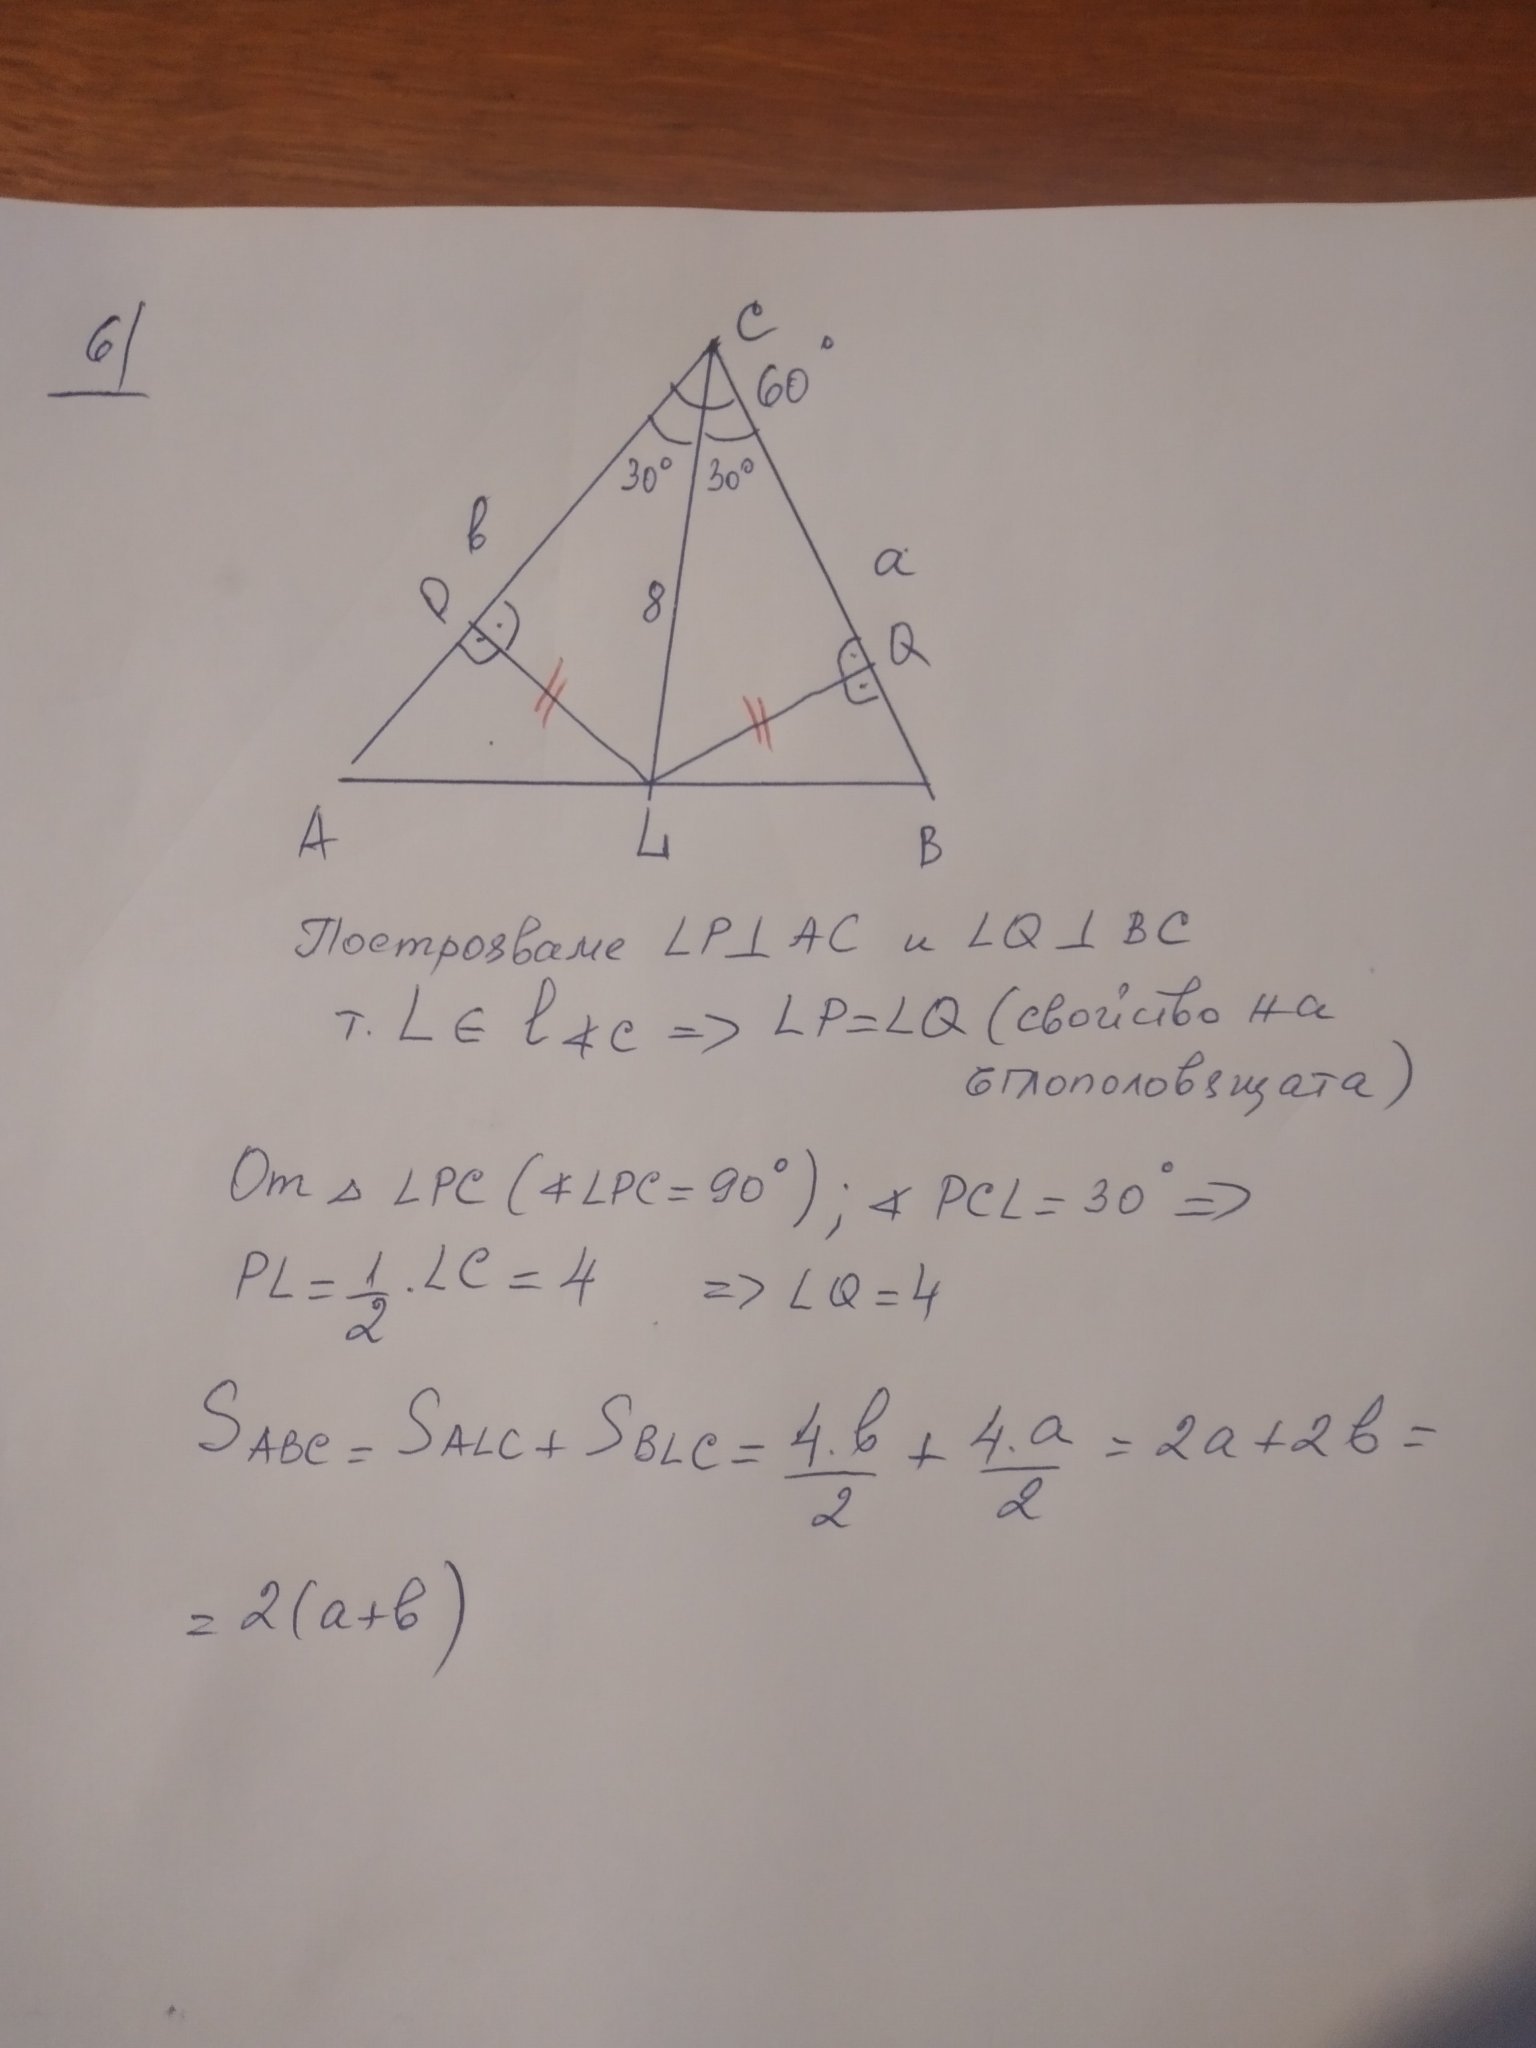 6/
C
60°
30° 30°
в
a
P
8
Q
A L B
Построяваме LP⊥AC и LQ⊥BC
т. L ∈ l∢C => LP=LQ (свойство на
ъглополовящата)
От △ LPC (∢LPC=90°); ∢ PCL=30° =>
PL=1/2.LC=4 => LQ=4
S ABC = S ALC + S BLC = 4.в/2 + 4.a/2 = 2a+2в =
= 2(a+в)